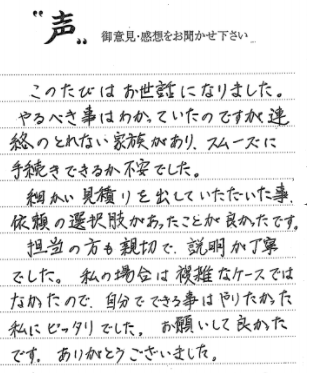 "声" 御意見・感想をお聞かせ下さい
このたびはお世話になりました。
やるべき事はわかっていたのですが連
絡のとれない家族があり、スムーズに
手続きできるか不安でした。
細かい見積りを出していただいた事、
依頼の選択肢があったことが良かったです。
担当の方も親切で、説明が丁寧
でした。私の場合は複雑なケースでは
なかったので、自分でできる事はやりたかった
私にピッタリでした。お願いして良かった
です。ありがとうございました。